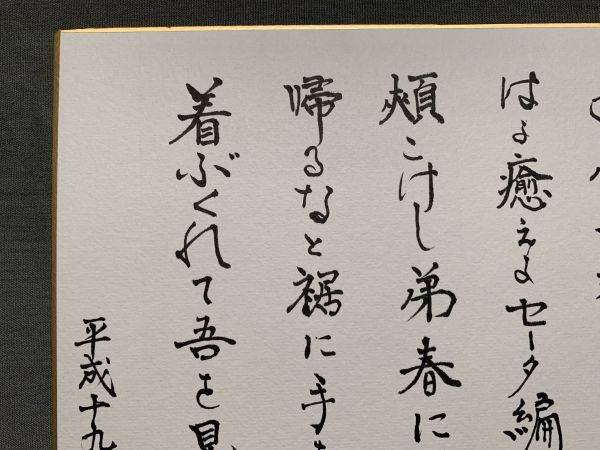 はよ癒えよセータ編
頰こけし弟春に
帰るなと裾に手を
着ぶくれて吾を見
平成十九